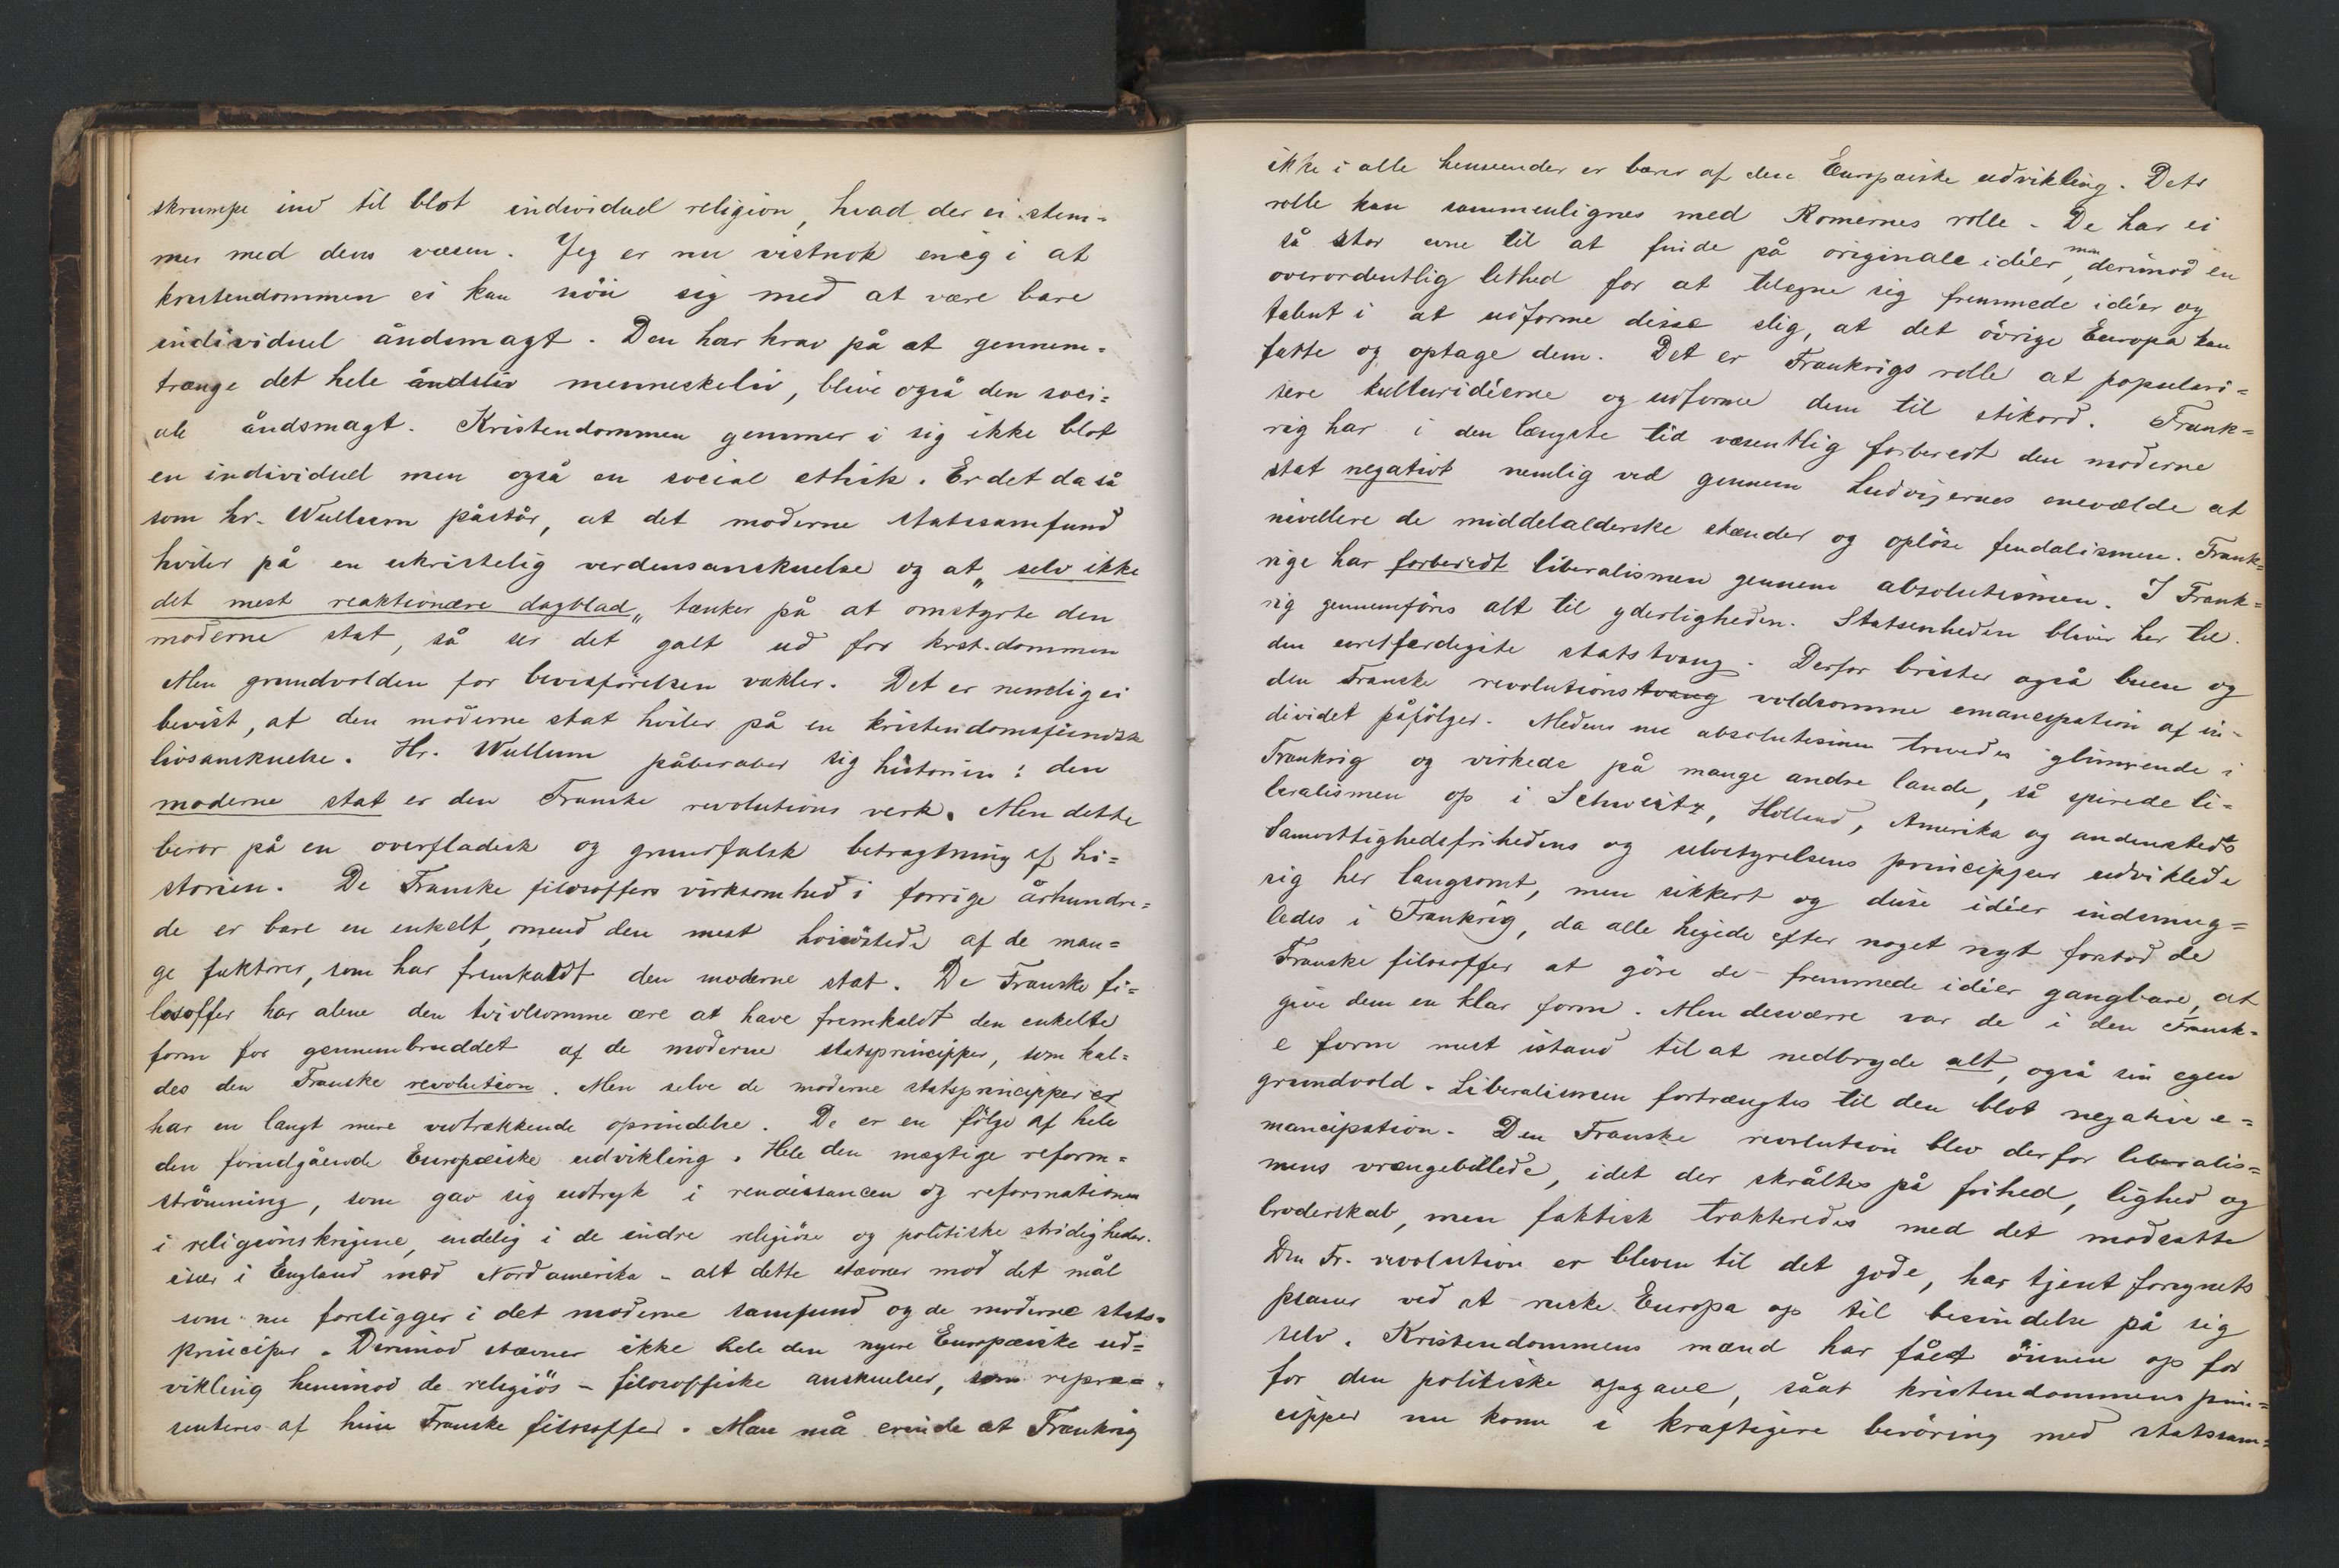 skrumpe ind til blot individuel religion, hvad der ei stem=
mer med dens væsen. Jeg er nu vistnok enig i at
kristendommen ei kan nöie sig med at være bare
individuel åndsmagt. Den har krav på at gennem=
trænge det hele åndsliv menneskeliv, blive også den soci=
ale åndsmagt. Kristendommen gemmer i sig ikke blot
en individuel men også en social ethik. Er det da så
som hr. Wullum påstår, at det moderne statssamfund
hviler på en ukristelig verdensanskuelse og at „selv ikke
det mest reaktionære dagblad„ tænker på at omstyrte den
moderne stat, så ser det galt ud for krst.dommen
Men grundvolden for bevisförelsen vakler. Det er nemlig ei
bevist, at den moderne stat hviler på en kristendomsfiendsk
livsanskuelse. Hr. Wullum påberaber sig historien: den
moderne stat er den Franske revolutions verk. Men dette
beror på en overfladisk og grundfalsk betragtning af hi=
storien. De Franske filosoffers virksomhed i forrige århundre=
de er bare en enkelt, omend den mest höiröstede af de man=
ge faktorer, som har fremkaldt den moderne stat. De Franske fi=
losoffer har alene den tvivlsomme ære at have fremkaldt den enkelte
form for gennembruddet af de moderne statsprincipper, som kal=
des den Franske revolution. Men selve de moderne statsprincipper er
har en langt mere vidtrækkende oprindelse. De er en fölge af hele
den forudgående Europæiske udvikling. Hele den mægtige reform=
strömning, som gav sig udtryk i renaissancen og reformationen
i religionskrigene, endelig i de indre religiöse og politiske stridigheder.
især i England med Nordamerika – alt dette stævner mod det mål
som nu foreligger i det moderne samfund og de moderne stats=
principer. Derimod stævner ikke hele den nyere Europæiske ud=
vikling henimod de religiös – filosoffiske anskuelser, som repræ=
senteres af hine Franske filosoffer. Man må erindre at Frankrig
ikke i alle henseender er bærer af den Europæiske udvikling. Dets
rolle kan sammenlignes med Romernes rolle – De har ei
så stor evne til at finde på originale idéer, men derimod en
overordentlig lethed for at tilegne sig fremmede idéer og
talent i at udforme disse slig, at det övrige Europa kan
fatte og optage dem. Det er Frankrigs rolle at populari=
sere kulturidéerne og udforme dem til stikord. Frank=
rig har i den længste tid væsentlig forberedt den moderne
stat negativt nemlig ved gennem Ludvigernes enevælde at
nivellere de middelalderske stænder og oplöse feudalismen. Frank=
rige har forberedt liberalismen gennem absolutismen. I Frank=
rig gennemföres alt til yderligheden. Statsenheden bliver her til
den uretfærdigste statstvang. Derfor brister også buen og
den Franske revolutionstvang voldsomme emancipation af in-
dividet påfölger. Medens nu absolutismen trivedes glimrende i
Frankrig og virkede på mange andre lande, så spirede li=
beralismen op i Schweitz, Holland, Amerika og andensteds
Samvittighedsfrihedens og selvstyrelsens principper udviklede
sig her langsomt, men sikkert og disse idéer indsmug=
ledes i Frankrig, da alle higede efter noget nyt forstod de
Franske filosoffer at göre de fremmede idéer gangbare, at
give dem en klar form. Men desværre var de i den Fransk=
e form mest istand til at nedbryde alt, også sin egen
grundvold. Liberalismen fortrængtes til den blot negative e=
mancipation. Den Franske revolution blev derfor liberalis=
mens vrængebillede, idet der skråltes på frihed, lighed og
broderskab, men faktisk trakteredes med det modsatte
Den Fr. revolution er bleven til det gode, har tjent forsynets
planer ved at ruske Europa op til besindelse på sig
selv. Kristendommens mænd har fået öinene op for
for den politiske opgave, såat kristendommens prin=
cipper nu kom i kraftigere beröring med statssam=